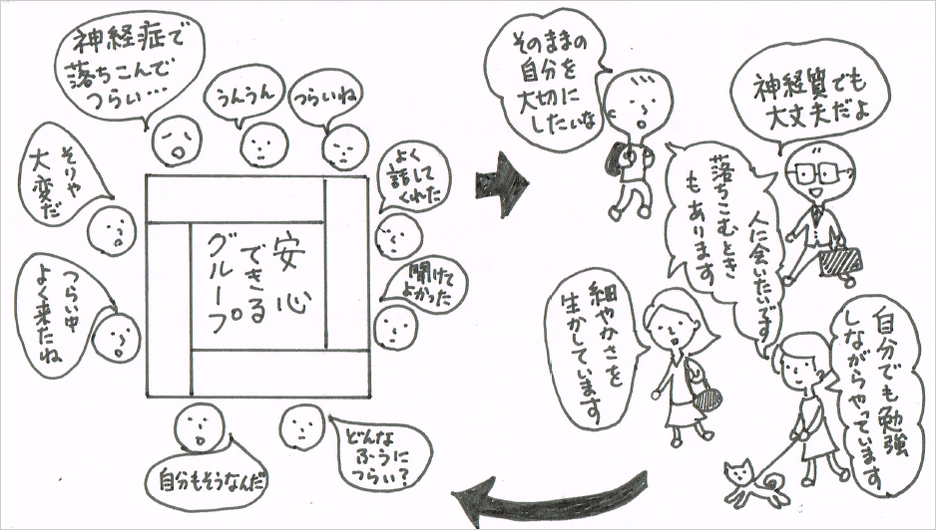 神経症で
落ちこんで
つらい…
うんうん
つらいね
そりゃ
大変だ
よく
話して
くれた
聞けて
よかった
つらい中
よく来たね
安心
できる
グループ
自分もそうなんだ
どんな
ふうに
つらい？
そのままの
自分を
大切に
したいな
神経質でも
大丈夫だよ
人に会いたいです
落ちこむとき
もあります
細やかさを
生かしています
自分でも勉強
しながらやっています